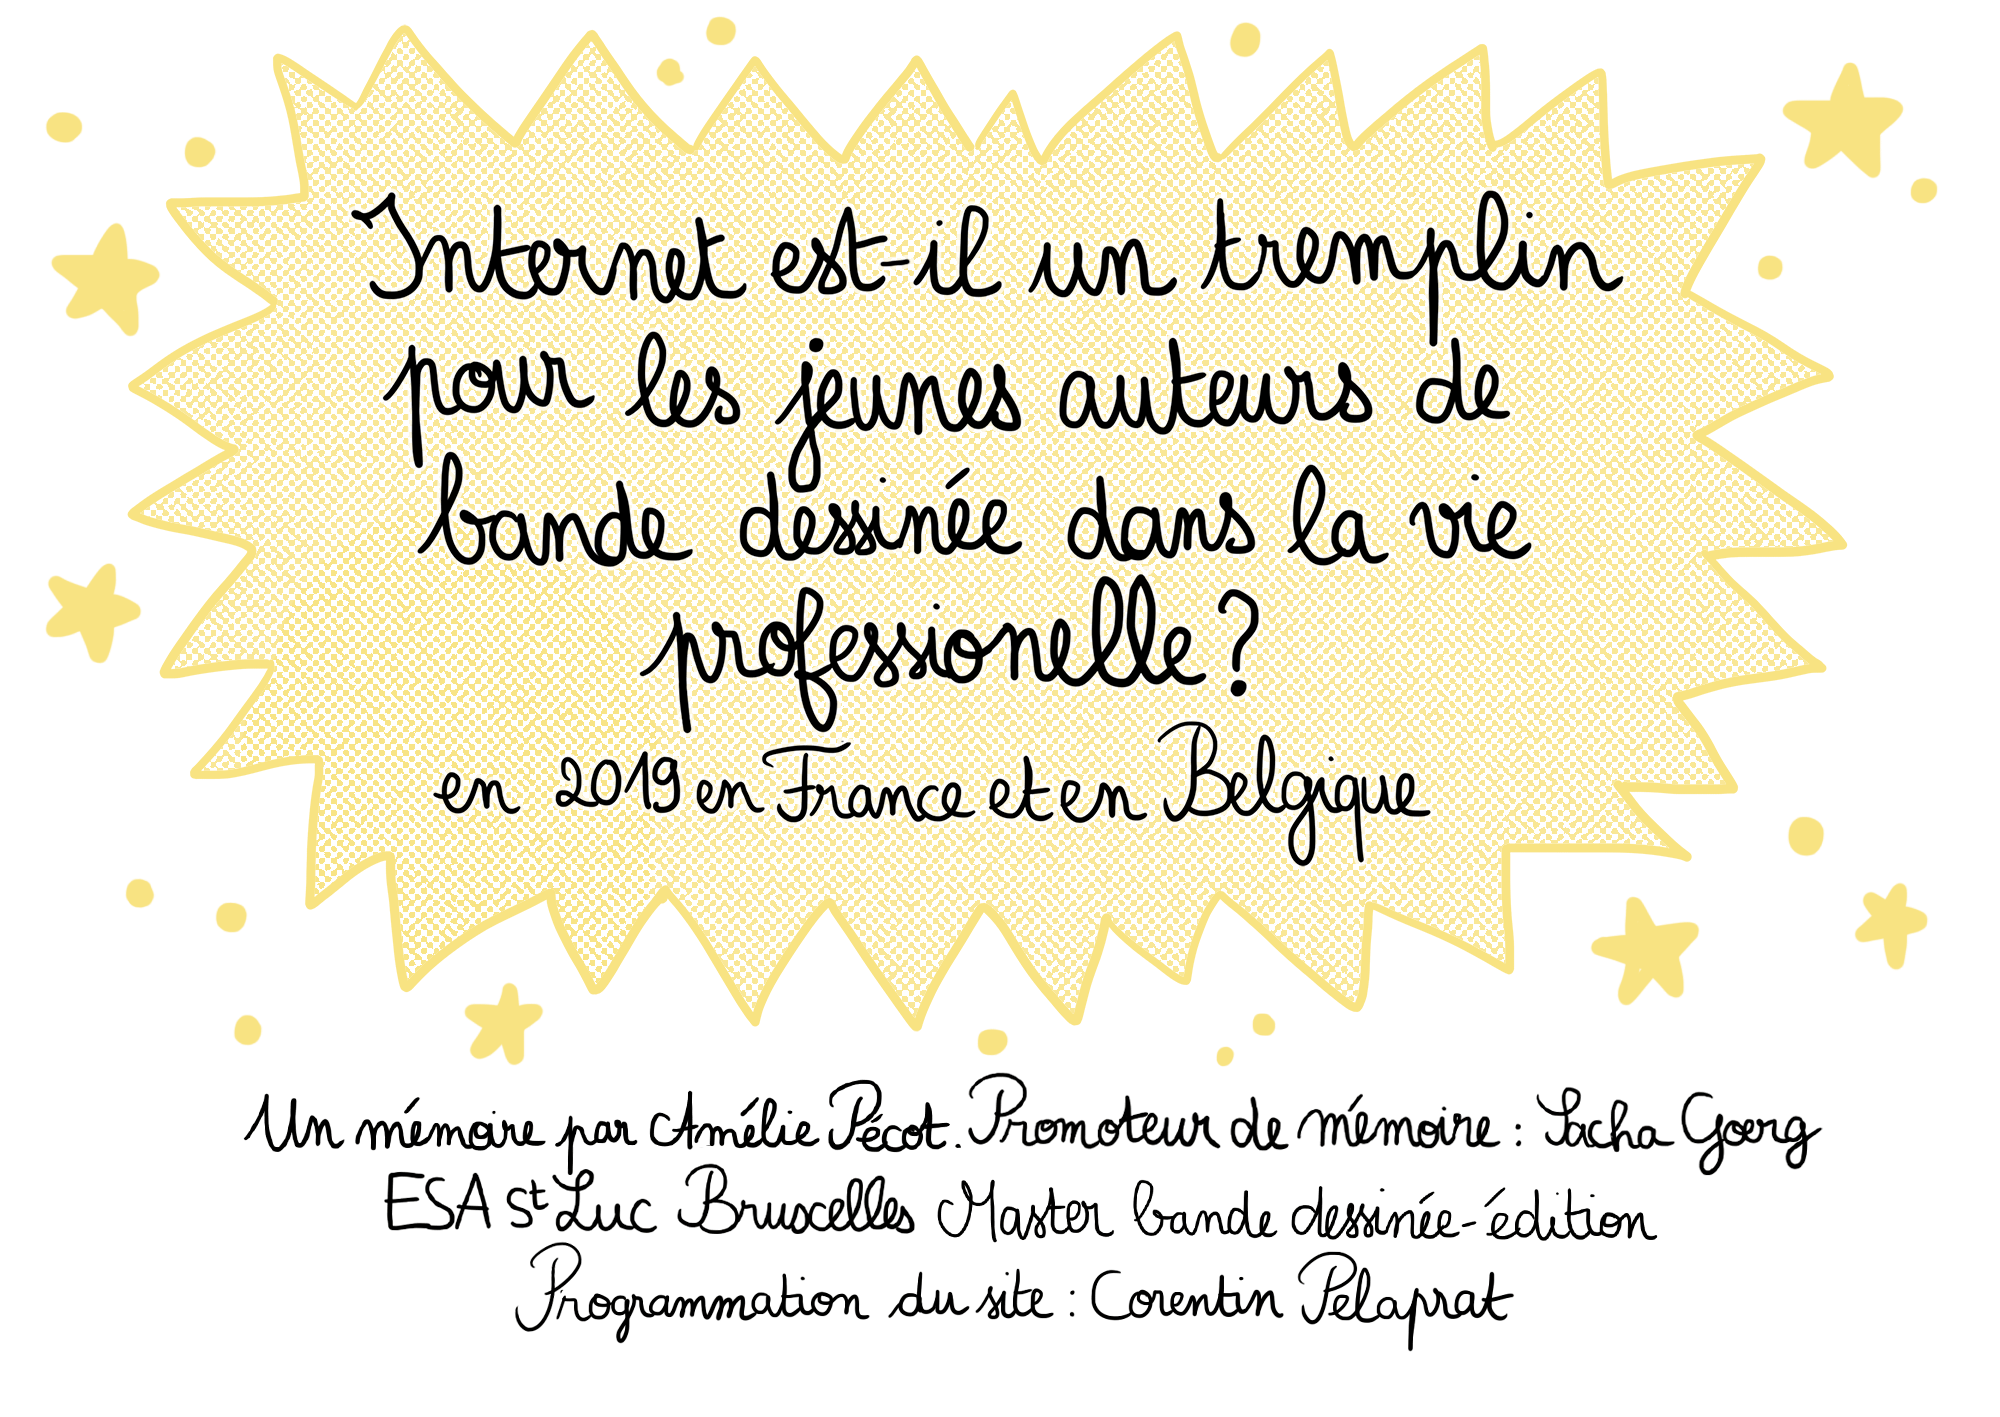 Internet est-il un tremplin
pour les jeunes auteurs de
bande dessinée dans la vie
professionelle ?
en 2019 en France et en Belgique
Un mémoire par Amélie Pécot. Promoteur de mémoire : Sacha Goerg
ESA St Luc Bruxelles Master bande dessinée-édition
Programmation du site : Corentin Pelaprat